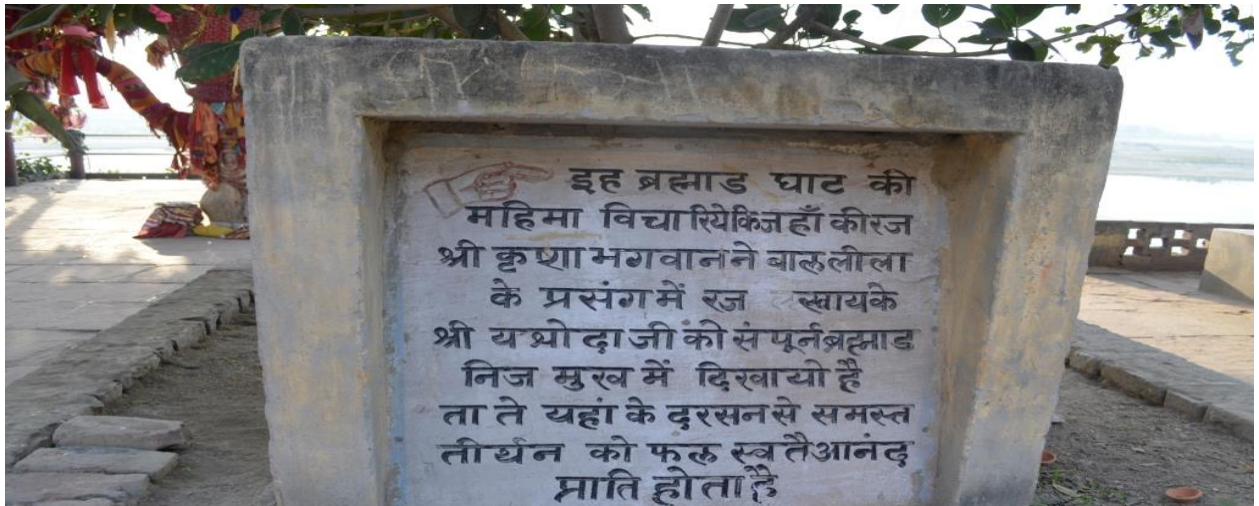 इह ब्रह्माड घाट की
महिमा विचारियेकिजहाँ कीरज
श्री कृष्णा भगवानने बाललीला
के प्रसंगमें रज खायके
श्री यशोदाजी को संपूर्नब्रह्माड
निज मुख में दिखायो है
ता ते यहां के दरसनसे समस्त
तीर्थन को फल स्वतैआनंद
प्राति होता है